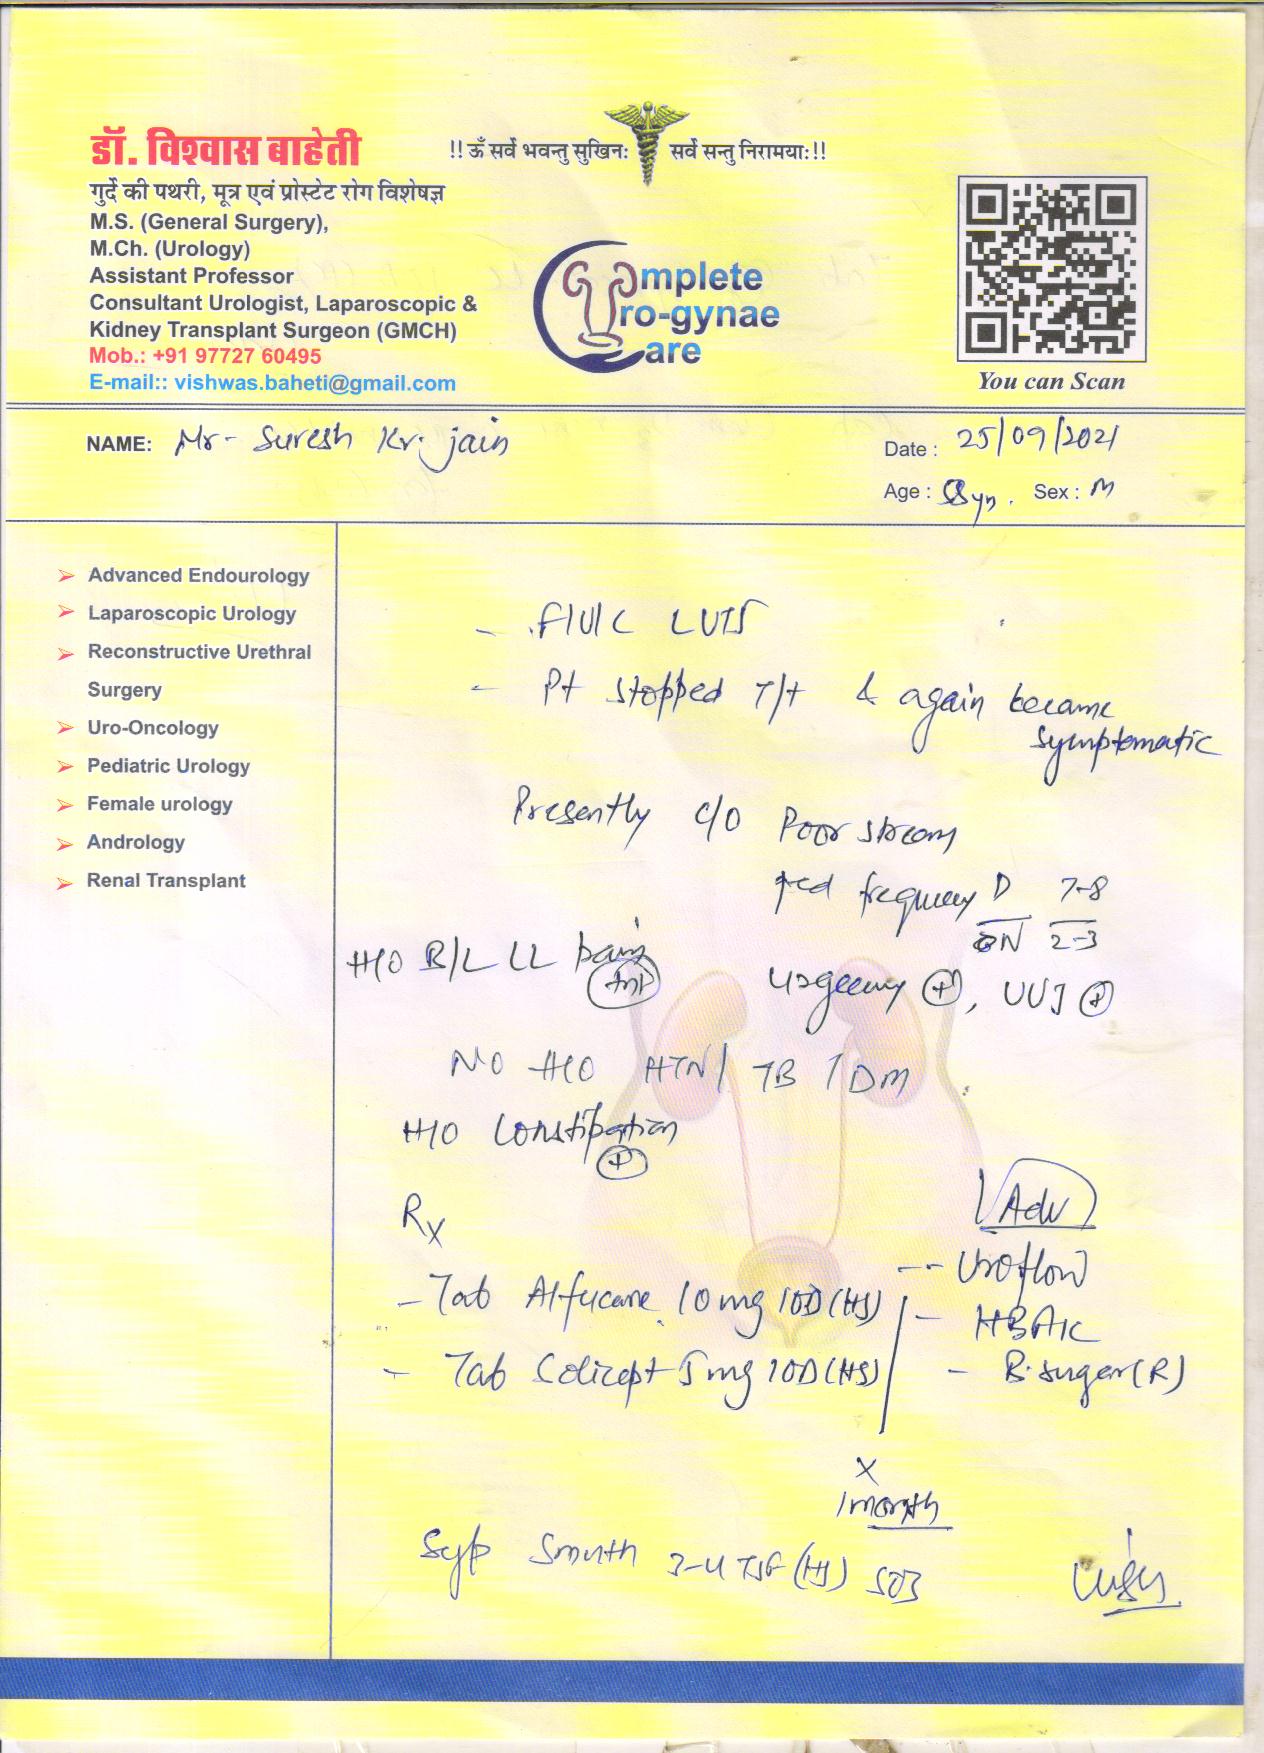 डॉ. विश्वास बाहेती
गुर्दे की पथरी, मूत्र एवं प्रोस्टेट रोग विशेषज्ञ
M.S. (General Surgery),
M.Ch. (Urology)
Assistant Professor
Consultant Urologist, Laparoscopic &
Kidney Transplant Surgeon (GMCH)
Mob.: +91 97727 60495
E-mail:: vishwas.baheti@gmail.com
!! ॐ सर्वे भवन्तु सुखिनः सर्वे सन्तु निरामयाः !!
Complete
Uro-gynae
Care
You can Scan
NAME: Mr- Suresh Kr. jain
Date : 25/09/2021
Age : Sex : M
Advanced Endourology
Laparoscopic Urology
Reconstructive Urethral
Surgery
Uro-Oncology
Pediatric Urology
Female urology
Andrology
Renal Transplant
- F/U/C LUTS
- Pt stopped T/t & again became
symptomatic
Presently c/o Poor stream
↑ed frequency D 7-8
N 2-3
H/O B/L LL pain
urgency (+), UUI (+)
No H/O HTN / TB / DM
H/O Constipation
(+)
Rx
- Tab Alfucane 10mg 1OD (HS)
- Tab Solicept 5mg 1OD (HS)
x
1 month
Syp Smuth 3-4 TSF (HS) SOS
Adv
-- Uroflow
- HBA1C
- B. sugar (R)